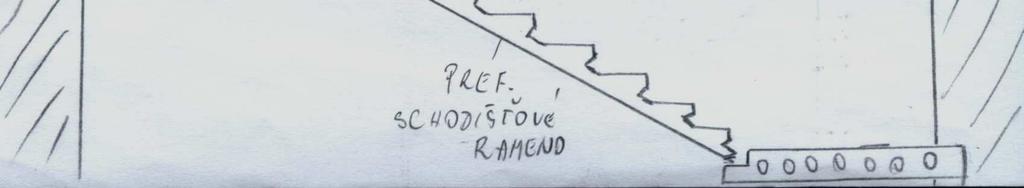 PREF.
SCHODIŠŤOVÉ
RAMENO